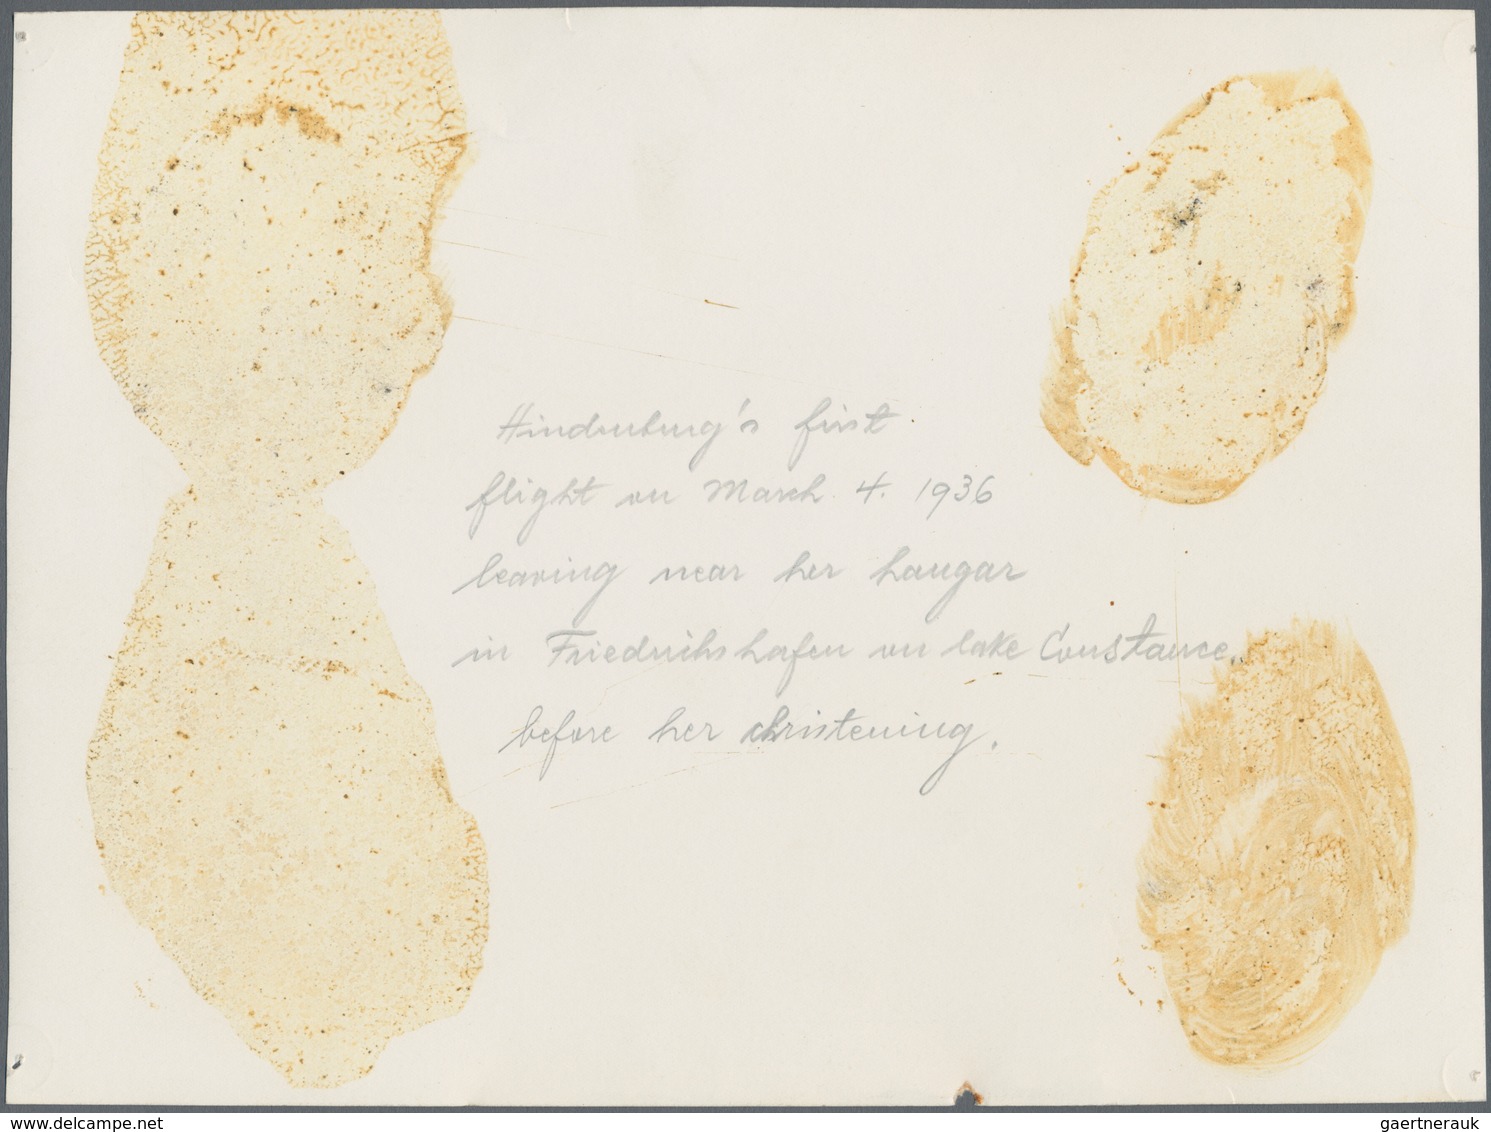 Hindenburg's first
flight on March. 4. 1936
leaving near her hangar
in Friedrichshafen on lake Constance.
before her christening.
www.delcampe.net
gaertnerauk